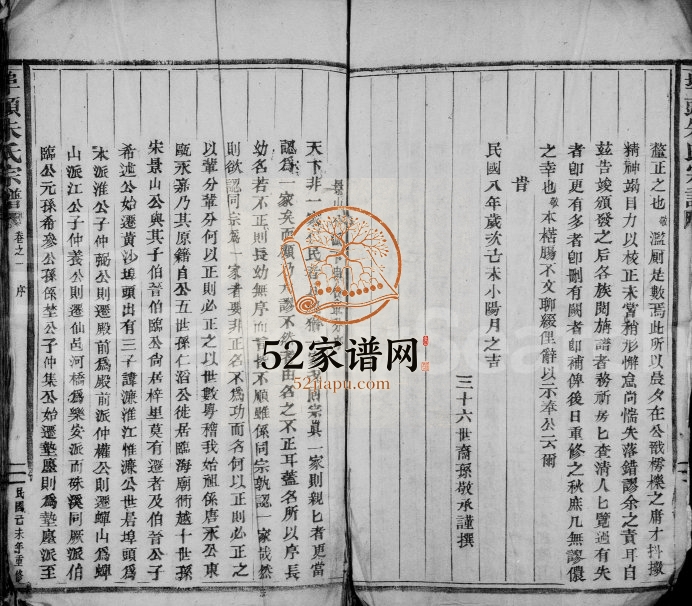 釐正之也敬濫厠是數焉此所以晨夕在公戩樗櫟之庸才抖擻
精神竭目力以校正未嘗稍形懈怠尚惴失落錯謬余之責耳自
玆告竣頒發之后各族閱族譜者務祈房匕查清人匕覽過有失
者卽更有多者卽刪有闕者卽補俾後日重修之秋庶几無謬儇
之幸也敬本楛腸不文聊綴俚辭以示奉公云爾
旹
民國八年歲次己未小陽月之吉
三十六世裔孫敬承謹撰
天下非一
宗眞一家則親匕者更當
認爲一家矣而顧乃
謬不
由名之不正耳蓋名所以序長
幼名若不正則長幼無序而
不順雖係同宗孰認一家哉然
則欲認同宗爲一家者要非正名不爲功而名何以正則必正之
以輩分輩分何以正則必正之以世數粤稽我始祖係唐永公東
甌永嘉乃其原籍自公五世孫仁滔公徙居臨海廟衕越十世孫
宋景山公與其子伯晉伯臨公尙居梓里莫有遷者及伯晉公子
希述公始遷黄沙埠頭出有三子諱濂淮江惟濂公世居埠頭爲
本派淮公子仲弼公則遷殿前爲殿前派仲權公則遷蟬山爲蟬
山派江公子仲義公則遷仙邑河橋爲樂安派而硃溪同厥派伯
臨公元孫希參公孫係埜公子仲集公始遷墊廛則爲墊廛派至
埠頭朱氏宗譜
卷之一
序
民國己未年重修
52家谱网
52jiapu.com